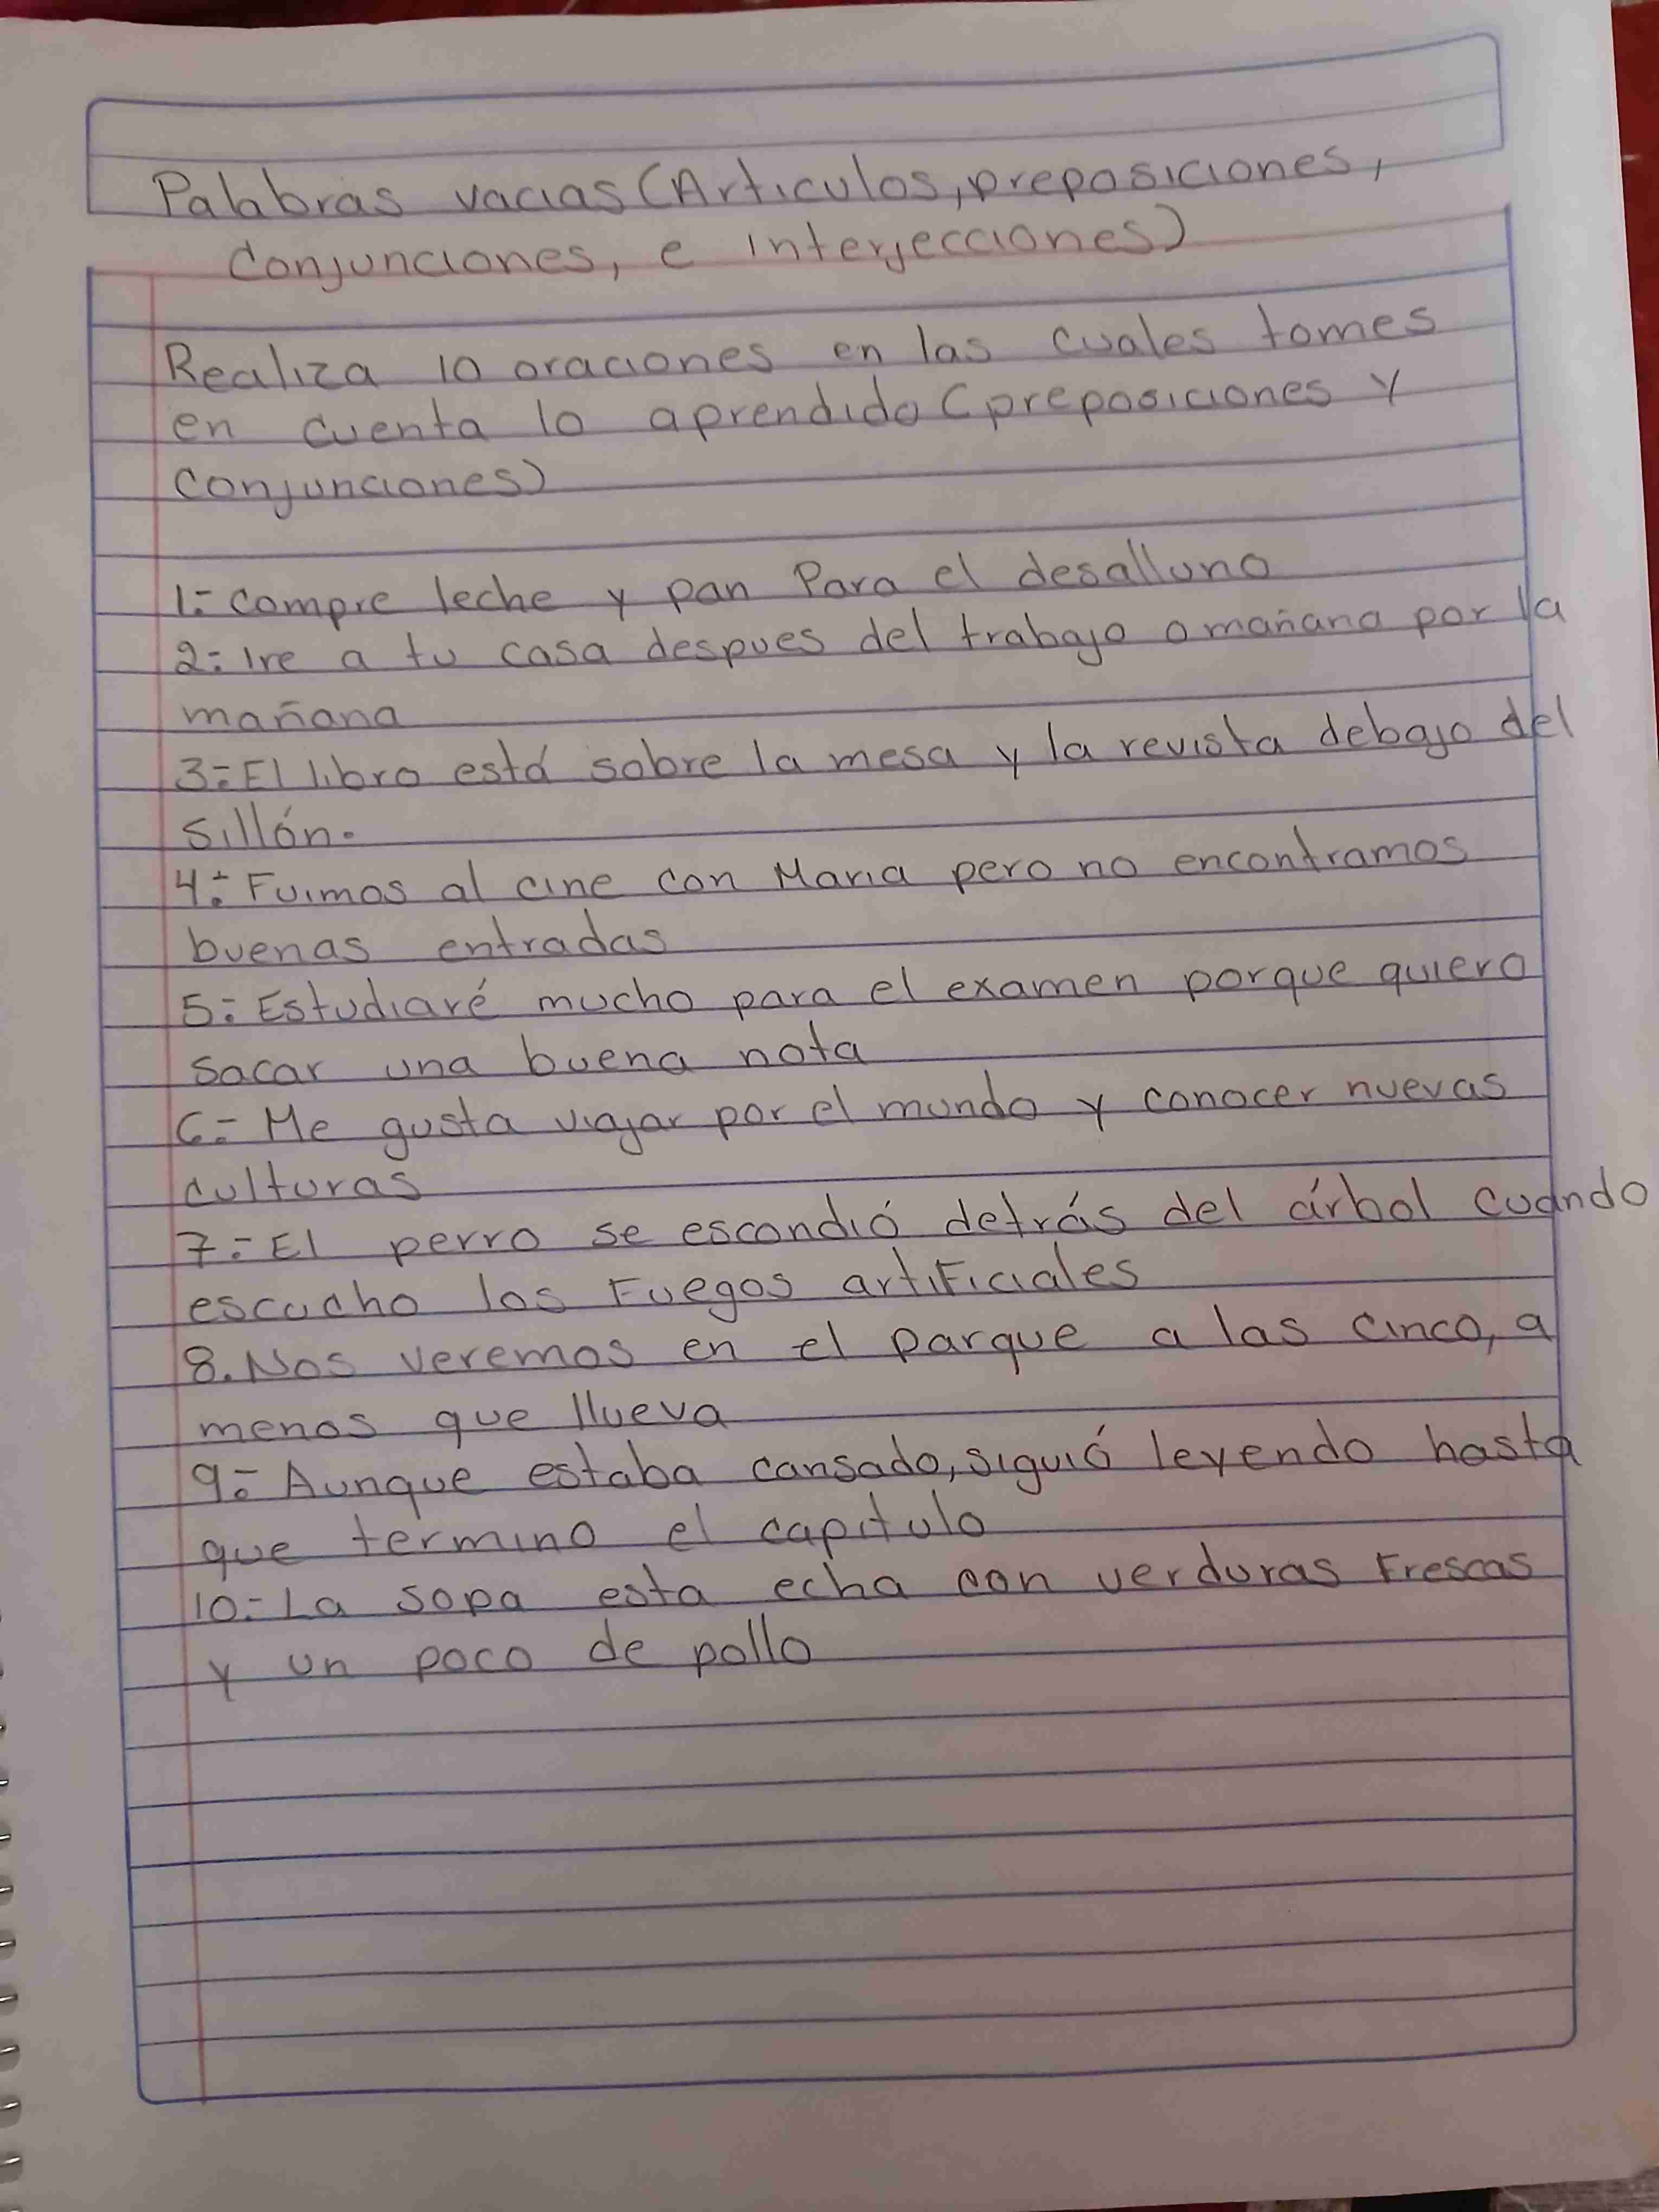 Palabras vacias (Articulos, preposiciones,
Conjunciones, e interjecciones)
Realiza 10 oraciones en las cuales tomes
en cuenta lo aprendido (preposiciones y
conjunciones)
1.- compre leche y pan Para el desalluno
2.- Ire a tu casa despues del trabajo o mañana por la
mañana
3.- El libro está sobre la mesa y la revista debajo del
sillón.
4.- Fuimos al cine con Maria pero no encontramos
buenas entradas
5.- Estudiaré mucho para el examen porque quiero
sacar una buena nota
6.- Me gusta viajar por el mundo y conocer nuevas
culturas
7.- El perro se escondió detrás del árbol cuando
escucho los Fuegos artiFiciales
8. Nos veremos en el parque a las cinco, a
menos que llueva
9.- Aunque estaba cansado, siguió leyendo hasta
que termino el capitulo
10.- La sopa esta echa con verduras Frescas
y un poco de pollo